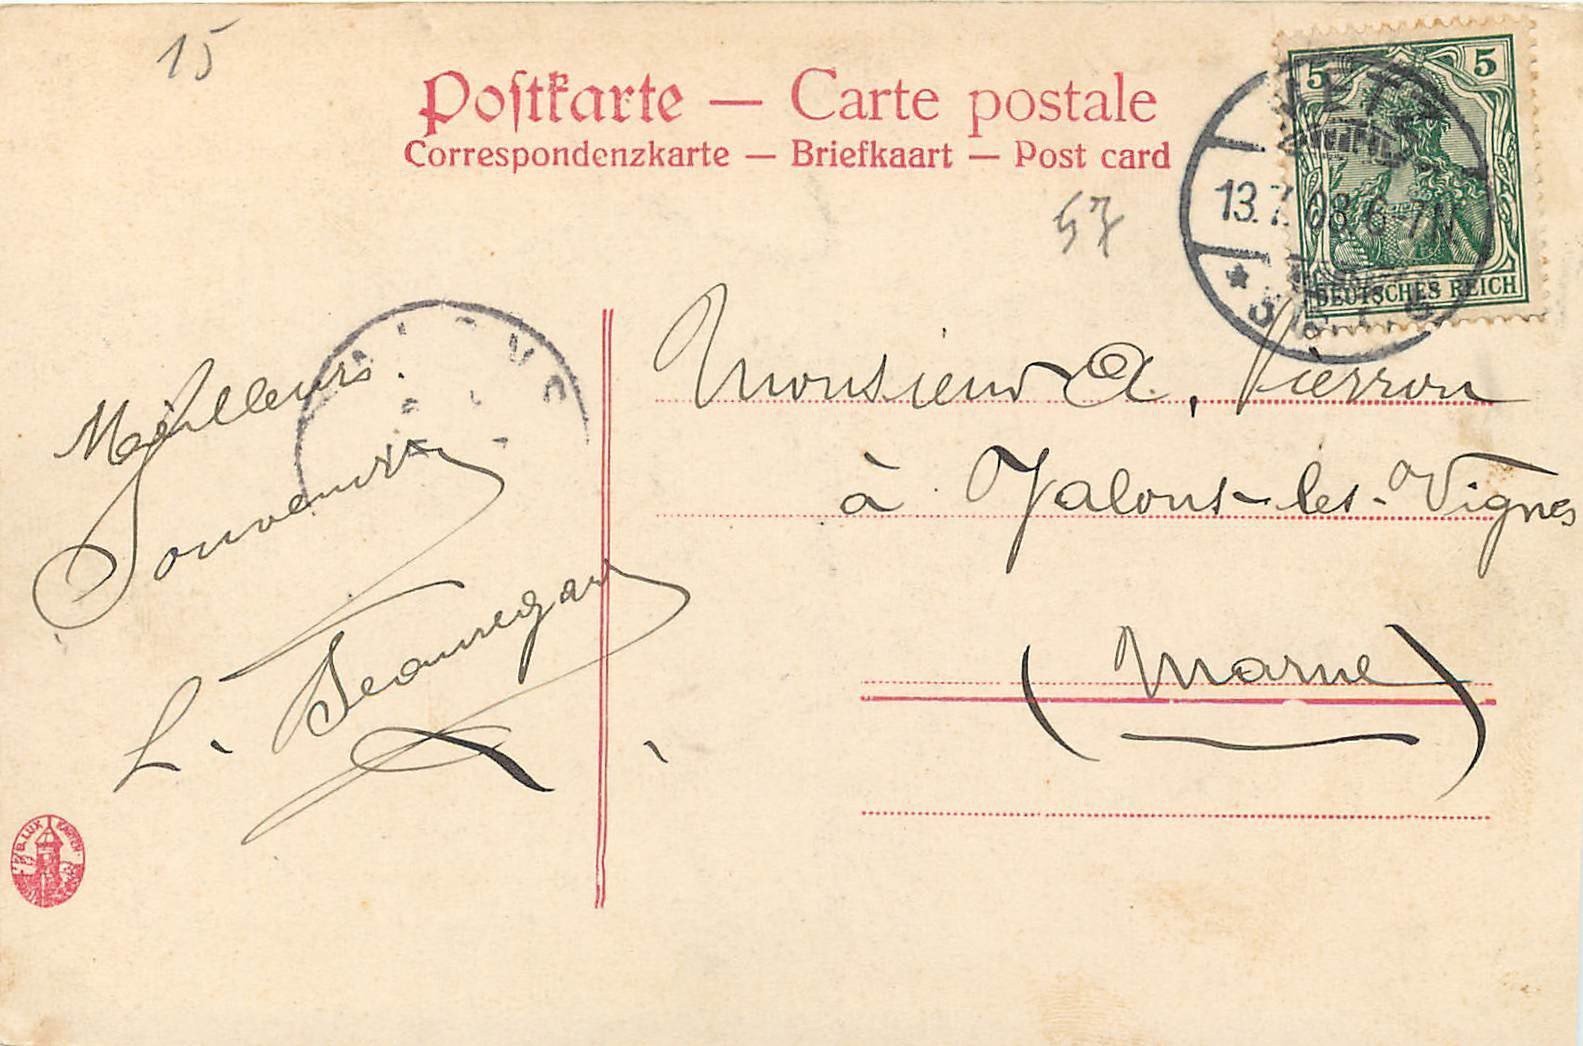 15
Postkarte — Carte postale
Correspondenzkarte — Briefkaart — Post card
57
5 5
DEUTSCHES REICH
METZ
13.7.08.6-7N.
Meilleurs
Souvenirs
L. Beauregard
Monsieur A. Pierron
à Jalons-les-Vignes
(Marne)
B. LUX KARTEN